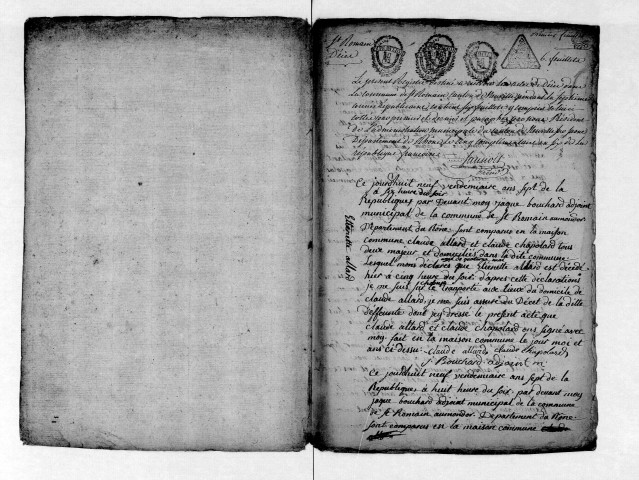 St Romain
Décès
6 feuillets
Le present Registre destiné à inscrire les actes de Décès dans
la commune de St Romain canton de Neuville pendant la septieme
année républicaine contient six feuillets y compris
cottés par premier et dernier et paraphés par nous President
de l'administration municipale du canton de Neuville sur Saone
Departement du Rhône le cinq complémentaire an six de la
republique francaise
Ce jourdhuit neuf vendemiaire ans sept de la
à six heure du soir
Republiques par Devant moy jaque bouchard adjoint
municipal de la commune de St Romain aumondor.
Departement du Rône. sont comparus en la maison
commune, claude allard et claude chapolard tous
deux majeur et domicilies dans la dite commune.
Lesquel mons déclares que Etienette allard est décédé
hier à cinq heure du soir. d'apres cette déclarations
je me suis sur le champ transporté aux lieux du domicile de
claude allard, je me suis assuré du Décet de la ditte
deffunte dont jey dressé le présent acte que
claude allard et claude chapolard ons signé avec
moy. fait en la maison commune le jour moi et
ans ci dessu. claude allard claude chapolard
Bouchard adjoint m
Etienette allard
Ce jourdhuit neuf vendemiaire ans sept de la
Republiques, à huit heure du soir. par devant moy
jaque bouchard adjoint municipal de la comune
de St Romain aumondor. Departement du Rône.
sont comparus en la maison commune